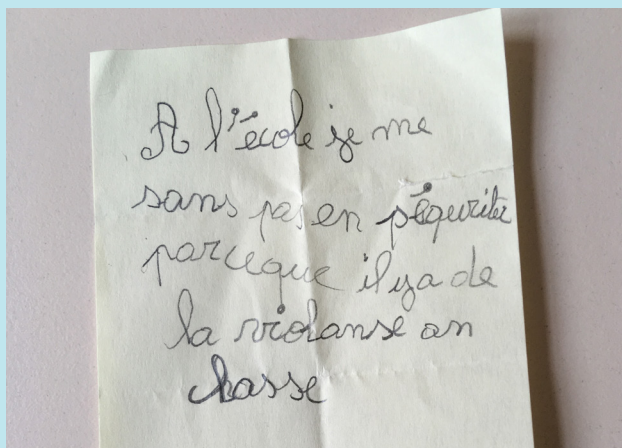 A l'école je me
sans pas en péqurité
parceque il ya de
la violanse an
chasse